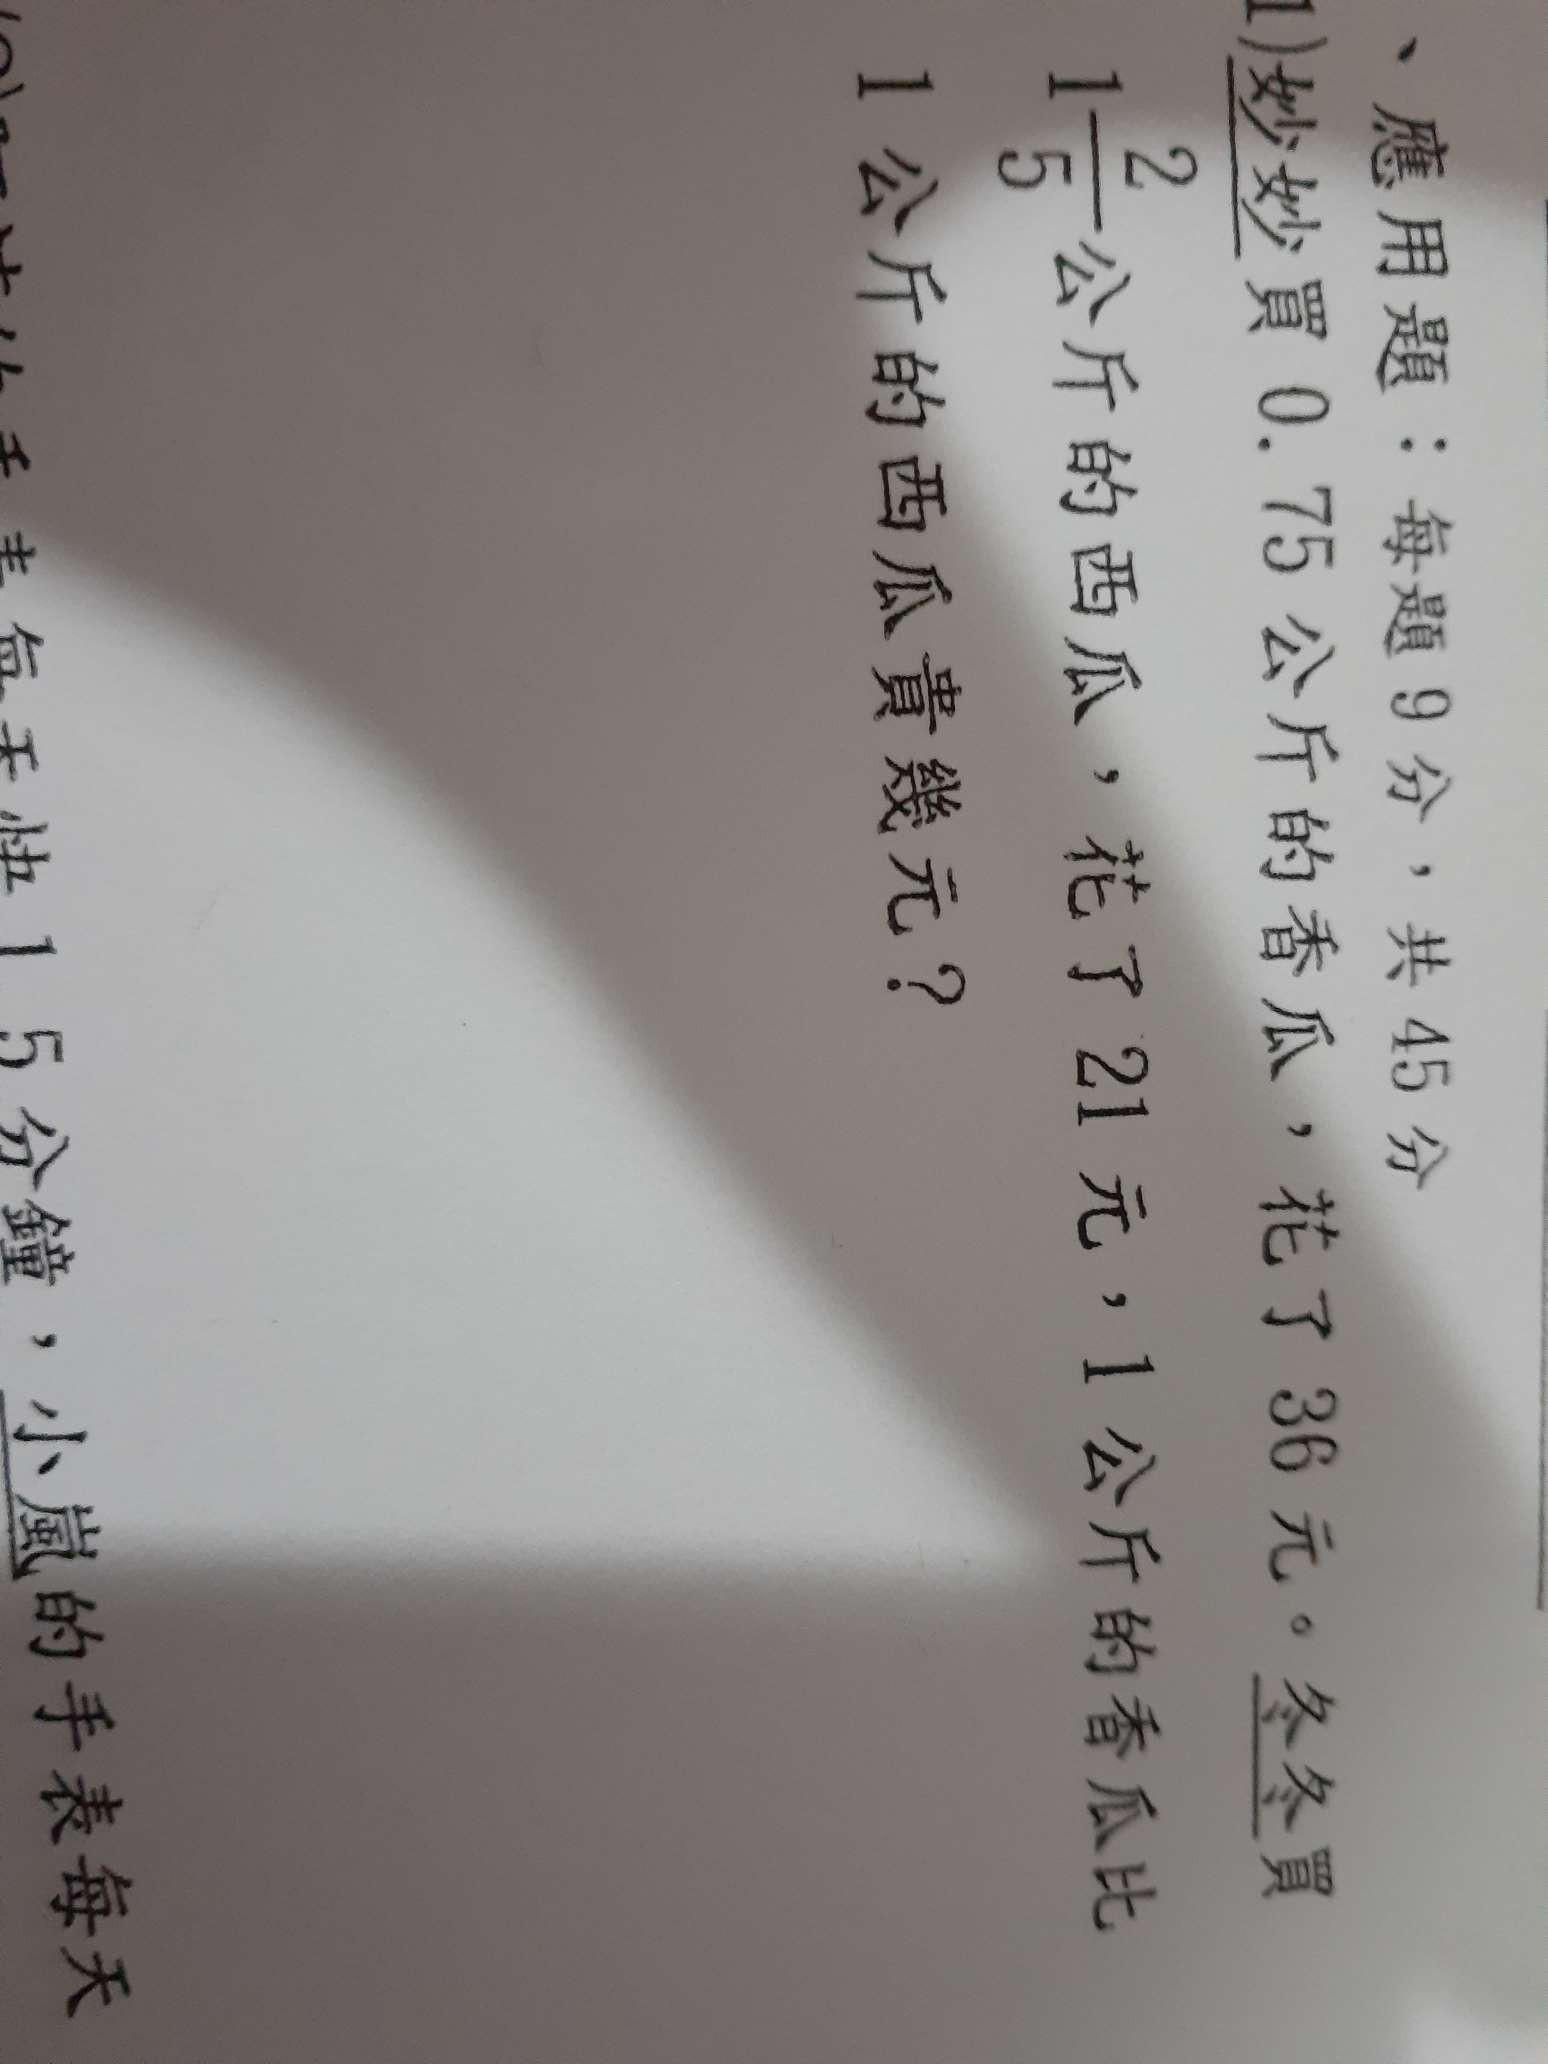 、應用題：每題9分，共45分
1)妙妙買0.75公斤的香瓜，花了36元。冬冬買
1 2/5 公斤的西瓜，花了21元，1公斤的香瓜比
1公斤的西瓜貴幾元？
每天快15分鐘，小嵐的手表每天